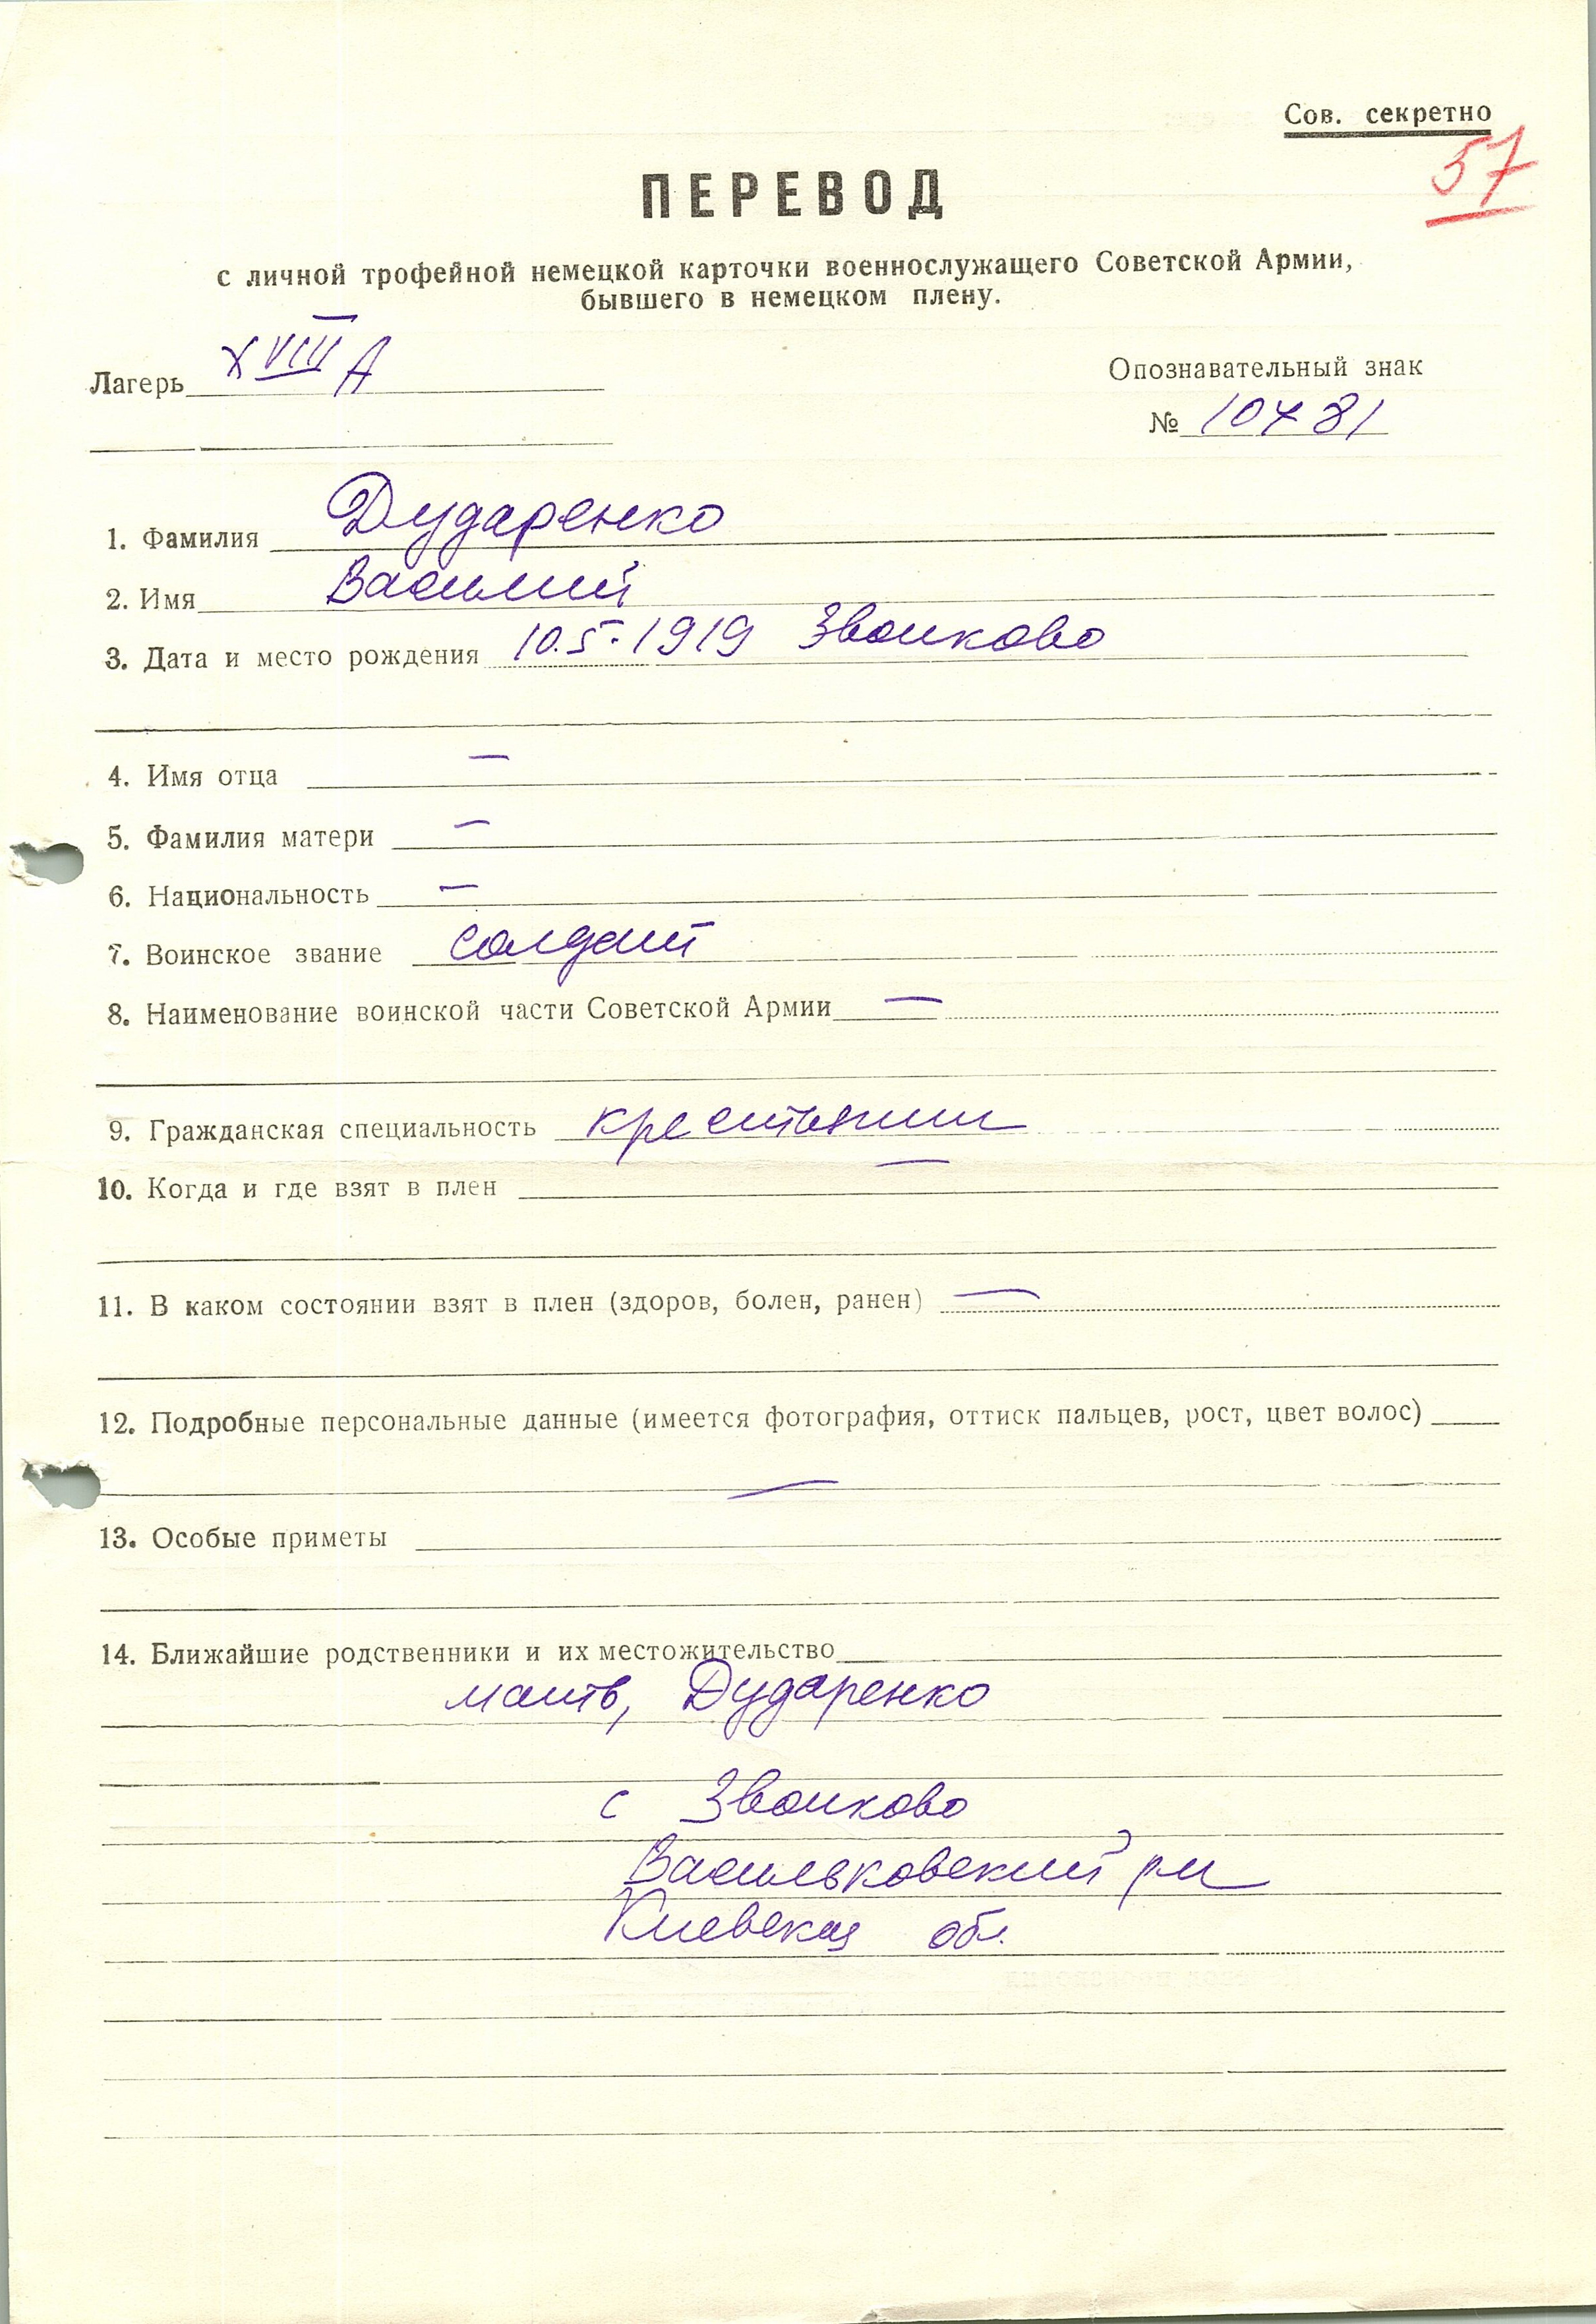 Сов. секретно
57
ПЕРЕВОД
с личной трофейной немецкой карточки военнослужащего Советской Армии,
бывшего в немецком плену.
Лагерь XVIII A
Опознавательный знак
№ 10781
1. Фамилия Дударенко
2. Имя Василий
3. Дата и место рождения 10.5.1919 Звонково
4. Имя отца —
5. Фамилия матери —
6. Национальность —
7. Воинское звание солдат
8. Наименование воинской части Советской Армии —
9. Гражданская специальность крестьянин
10. Когда и где взят в плен —
11. В каком состоянии взят в плен (здоров, болен, ранен) —
12. Подробные персональные данные (имеется фотография, оттиск пальцев, рост, цвет волос)
—
13. Особые приметы
14. Ближайшие родственники и их местожительство
мать, Дударенко
с Звонково
Васильковский рн
Киевская обл.